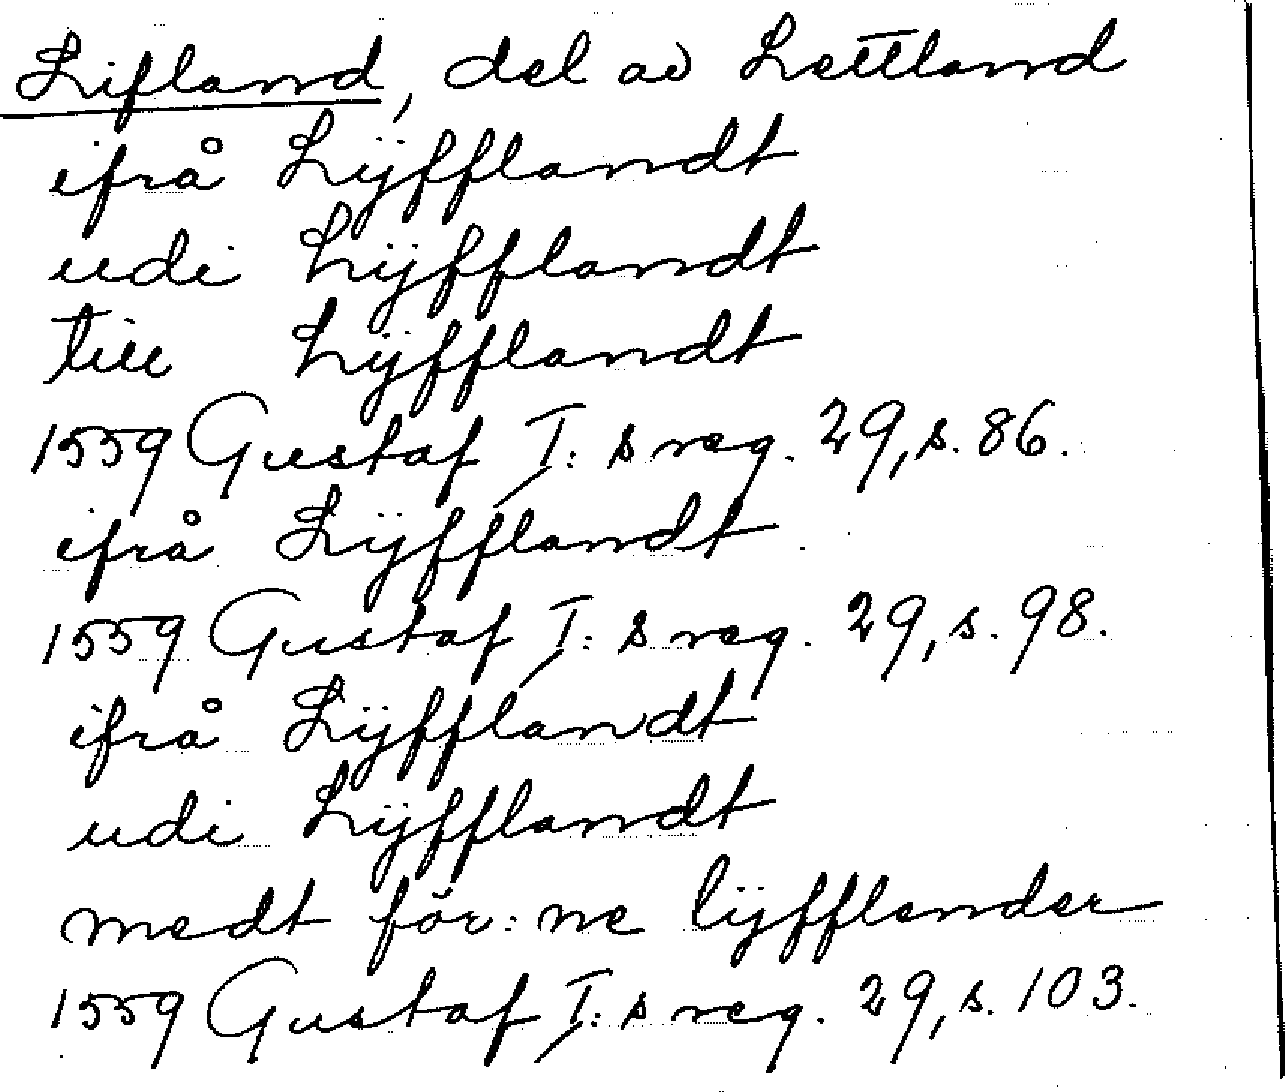 Lifland, del av Lettland
ifrå Lÿfflandt
udi Lÿfflandt
till Lÿfflandt
1559 Gustaf I:s reg. 29, s. 86.
ifrå Lÿfflandt
1559 Gustaf I:s reg. 29, s. 98.
ifrå Lÿfflandt
udi Lÿfflandt
medt för:ne lÿfflender
1559 Gustaf I:s reg. 29, s. 103.